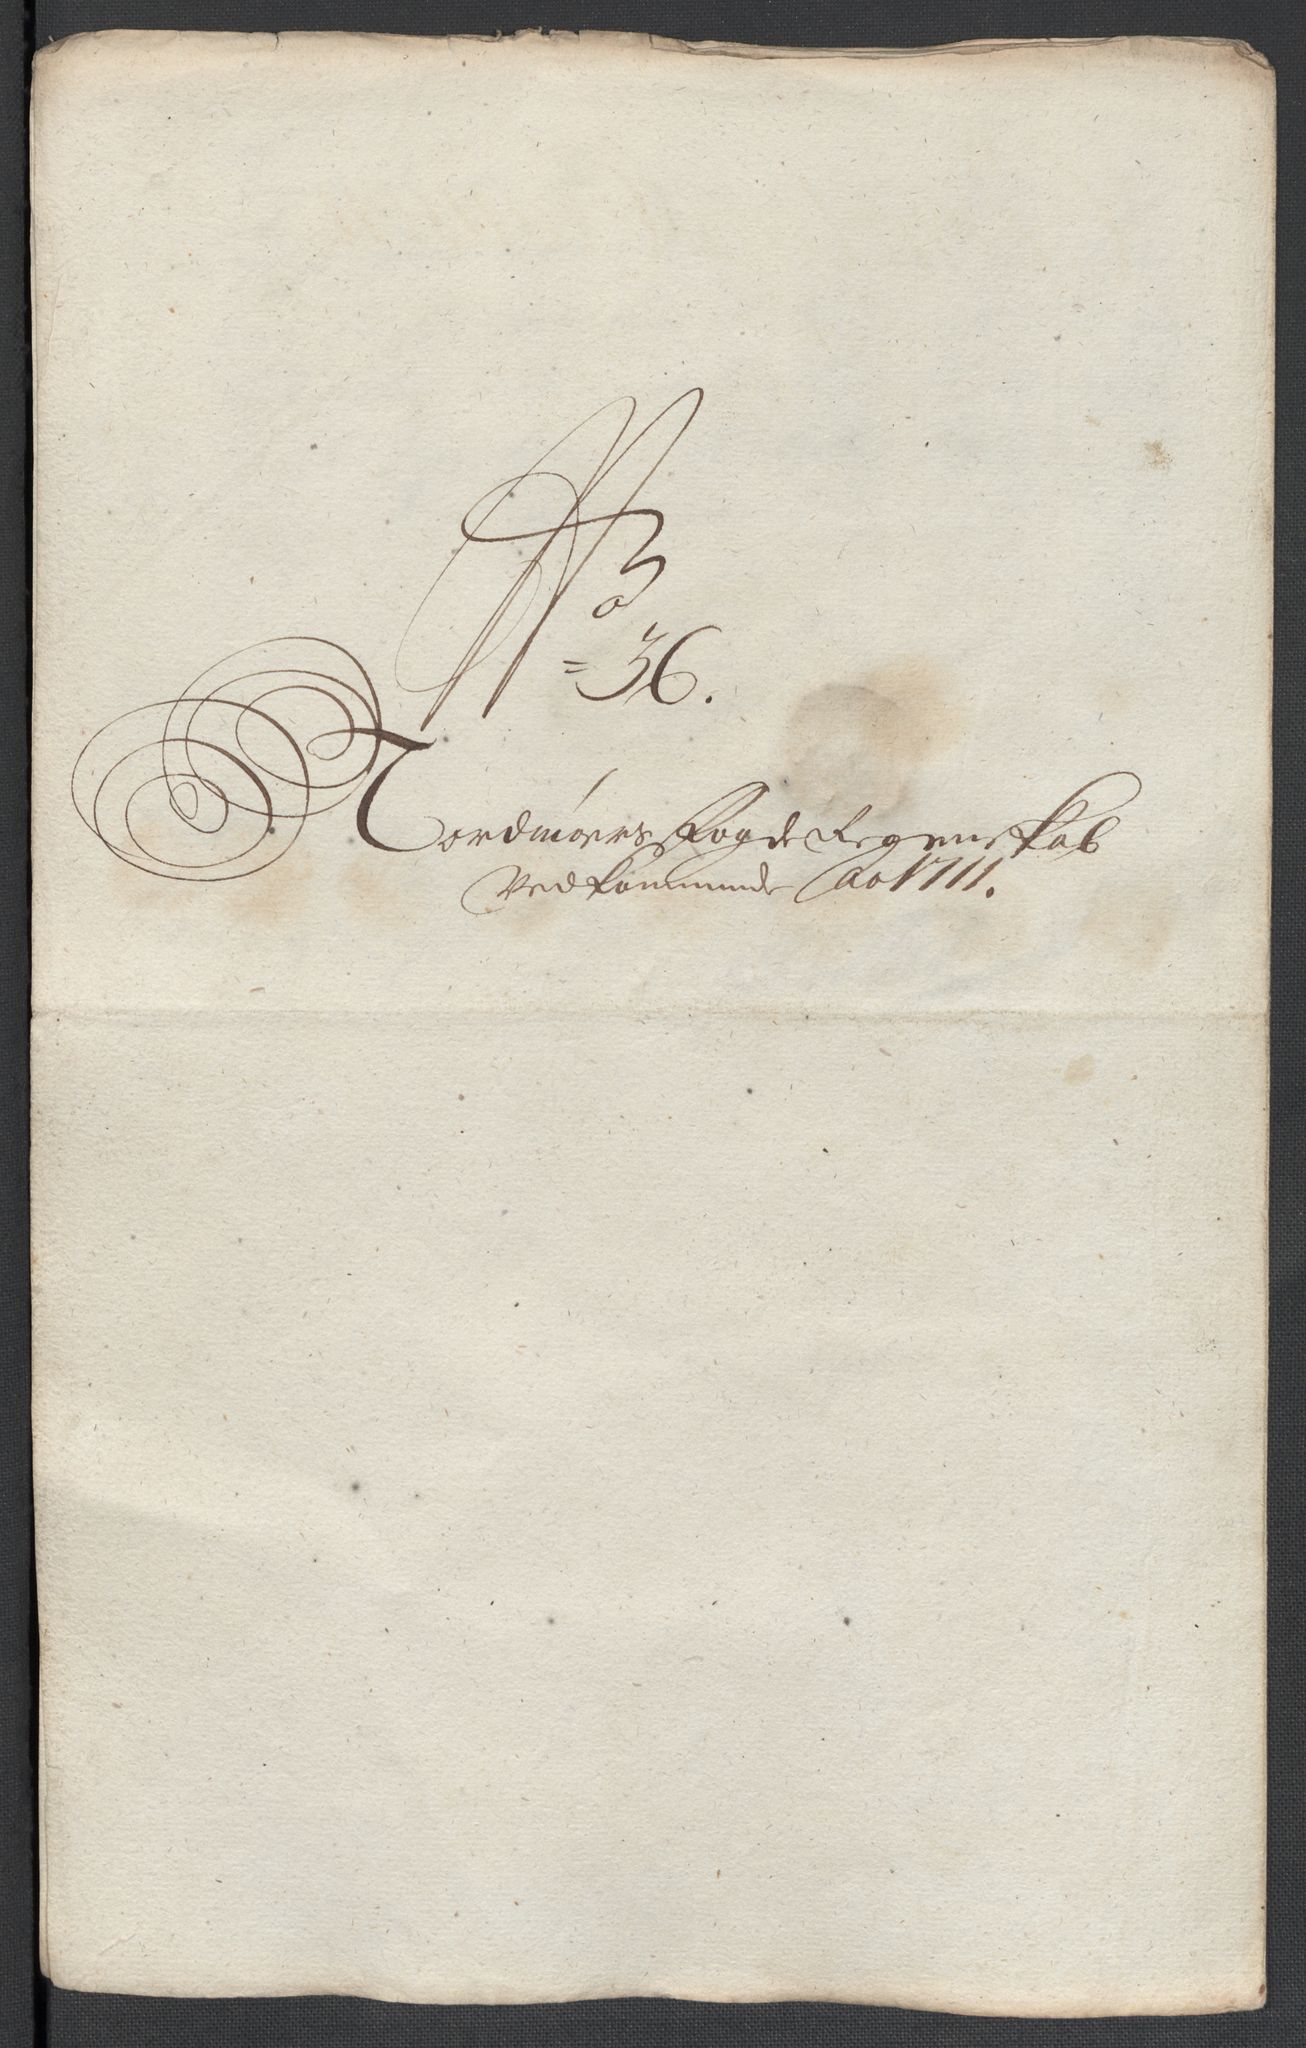 No
36.
Nordmøers Fogde Regenskab
Vedkommende Ao 1711.